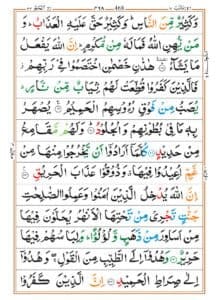 وَكَثِيْرٌ مِّنَ النَّاسِ ؕ وَكَثِيْرٌ حَقَّ عَلَيْهِ الْعَذَابُ ؕ وَ
مَنْ يُّهِنِ اللّٰهُ فَمَا لَهٗ مِنْ مُّكْرِمٍ ؕ اِنَّ اللّٰهَ يَفْعَلُ
مَا يَشَآءُ هٰذٰنِ خَصْمٰنِ اخْتَصَمُوْا فِيْ رَبِّهِمْ
فَالَّذِيْنَ كَفَرُوْا قُطِّعَتْ لَهُمْ ثِيَابٌ مِّنْ نَّارٍ
يُصَبُّ مِنْ فَوْقِ رُءُوْسِهِمُ الْحَمِيْمُ يُصْهَرُ بِهٖ
مَا فِيْ بُطُوْنِهِمْ وَالْجُلُوْدُ وَلَهُمْ مَّقَامِعُ
مِنْ حَدِيْدٍ كُلَّمَآ اَرَادُوْٓا اَنْ يَّخْرُجُوْا مِنْهَا مِنْ
غَمٍّ اُعِيْدُوْا فِيْهَا وَذُوْقُوْا عَذَابَ الْحَرِيْقِ
اِنَّ اللّٰهَ يُدْخِلُ الَّذِيْنَ اٰمَنُوْا وَعَمِلُوا الصّٰلِحٰتِ
جَنّٰتٍ تَجْرِيْ مِنْ تَحْتِهَا الْاَنْهٰرُ يُحَلَّوْنَ فِيْهَا
مِنْ اَسَاوِرَ مِنْ ذَهَبٍ وَّلُؤْلُؤًا ؕ وَلِبَاسُهُمْ فِيْهَا
حَرِيْرٌ وَهُدُوْٓا اِلَى الطَّيِّبِ مِنَ الْقَوْلِ وَهُدُوْٓا
اِلٰى صِرَاطِ الْحَمِيْدِ اِنَّ الَّذِيْنَ كَفَرُوْا